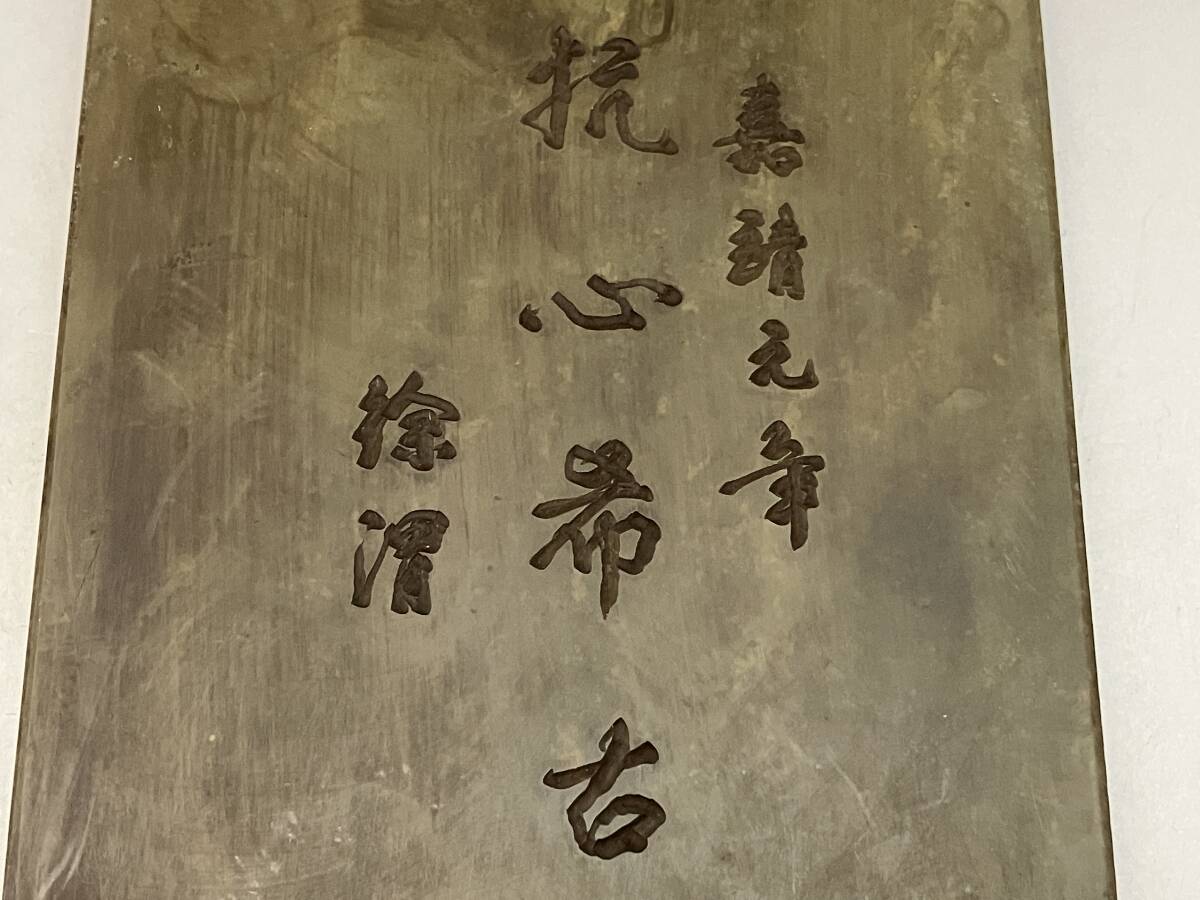 嘉靖元年
抗心希古
徐渭